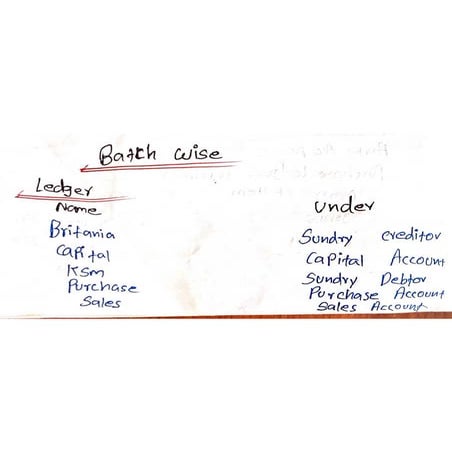 Batch wise
Ledger
Name Under
Britania Sundry creditor
Capital Capital Account
KSm Sundry Debtor
Purchase Purchase Account
Sales Sales Account